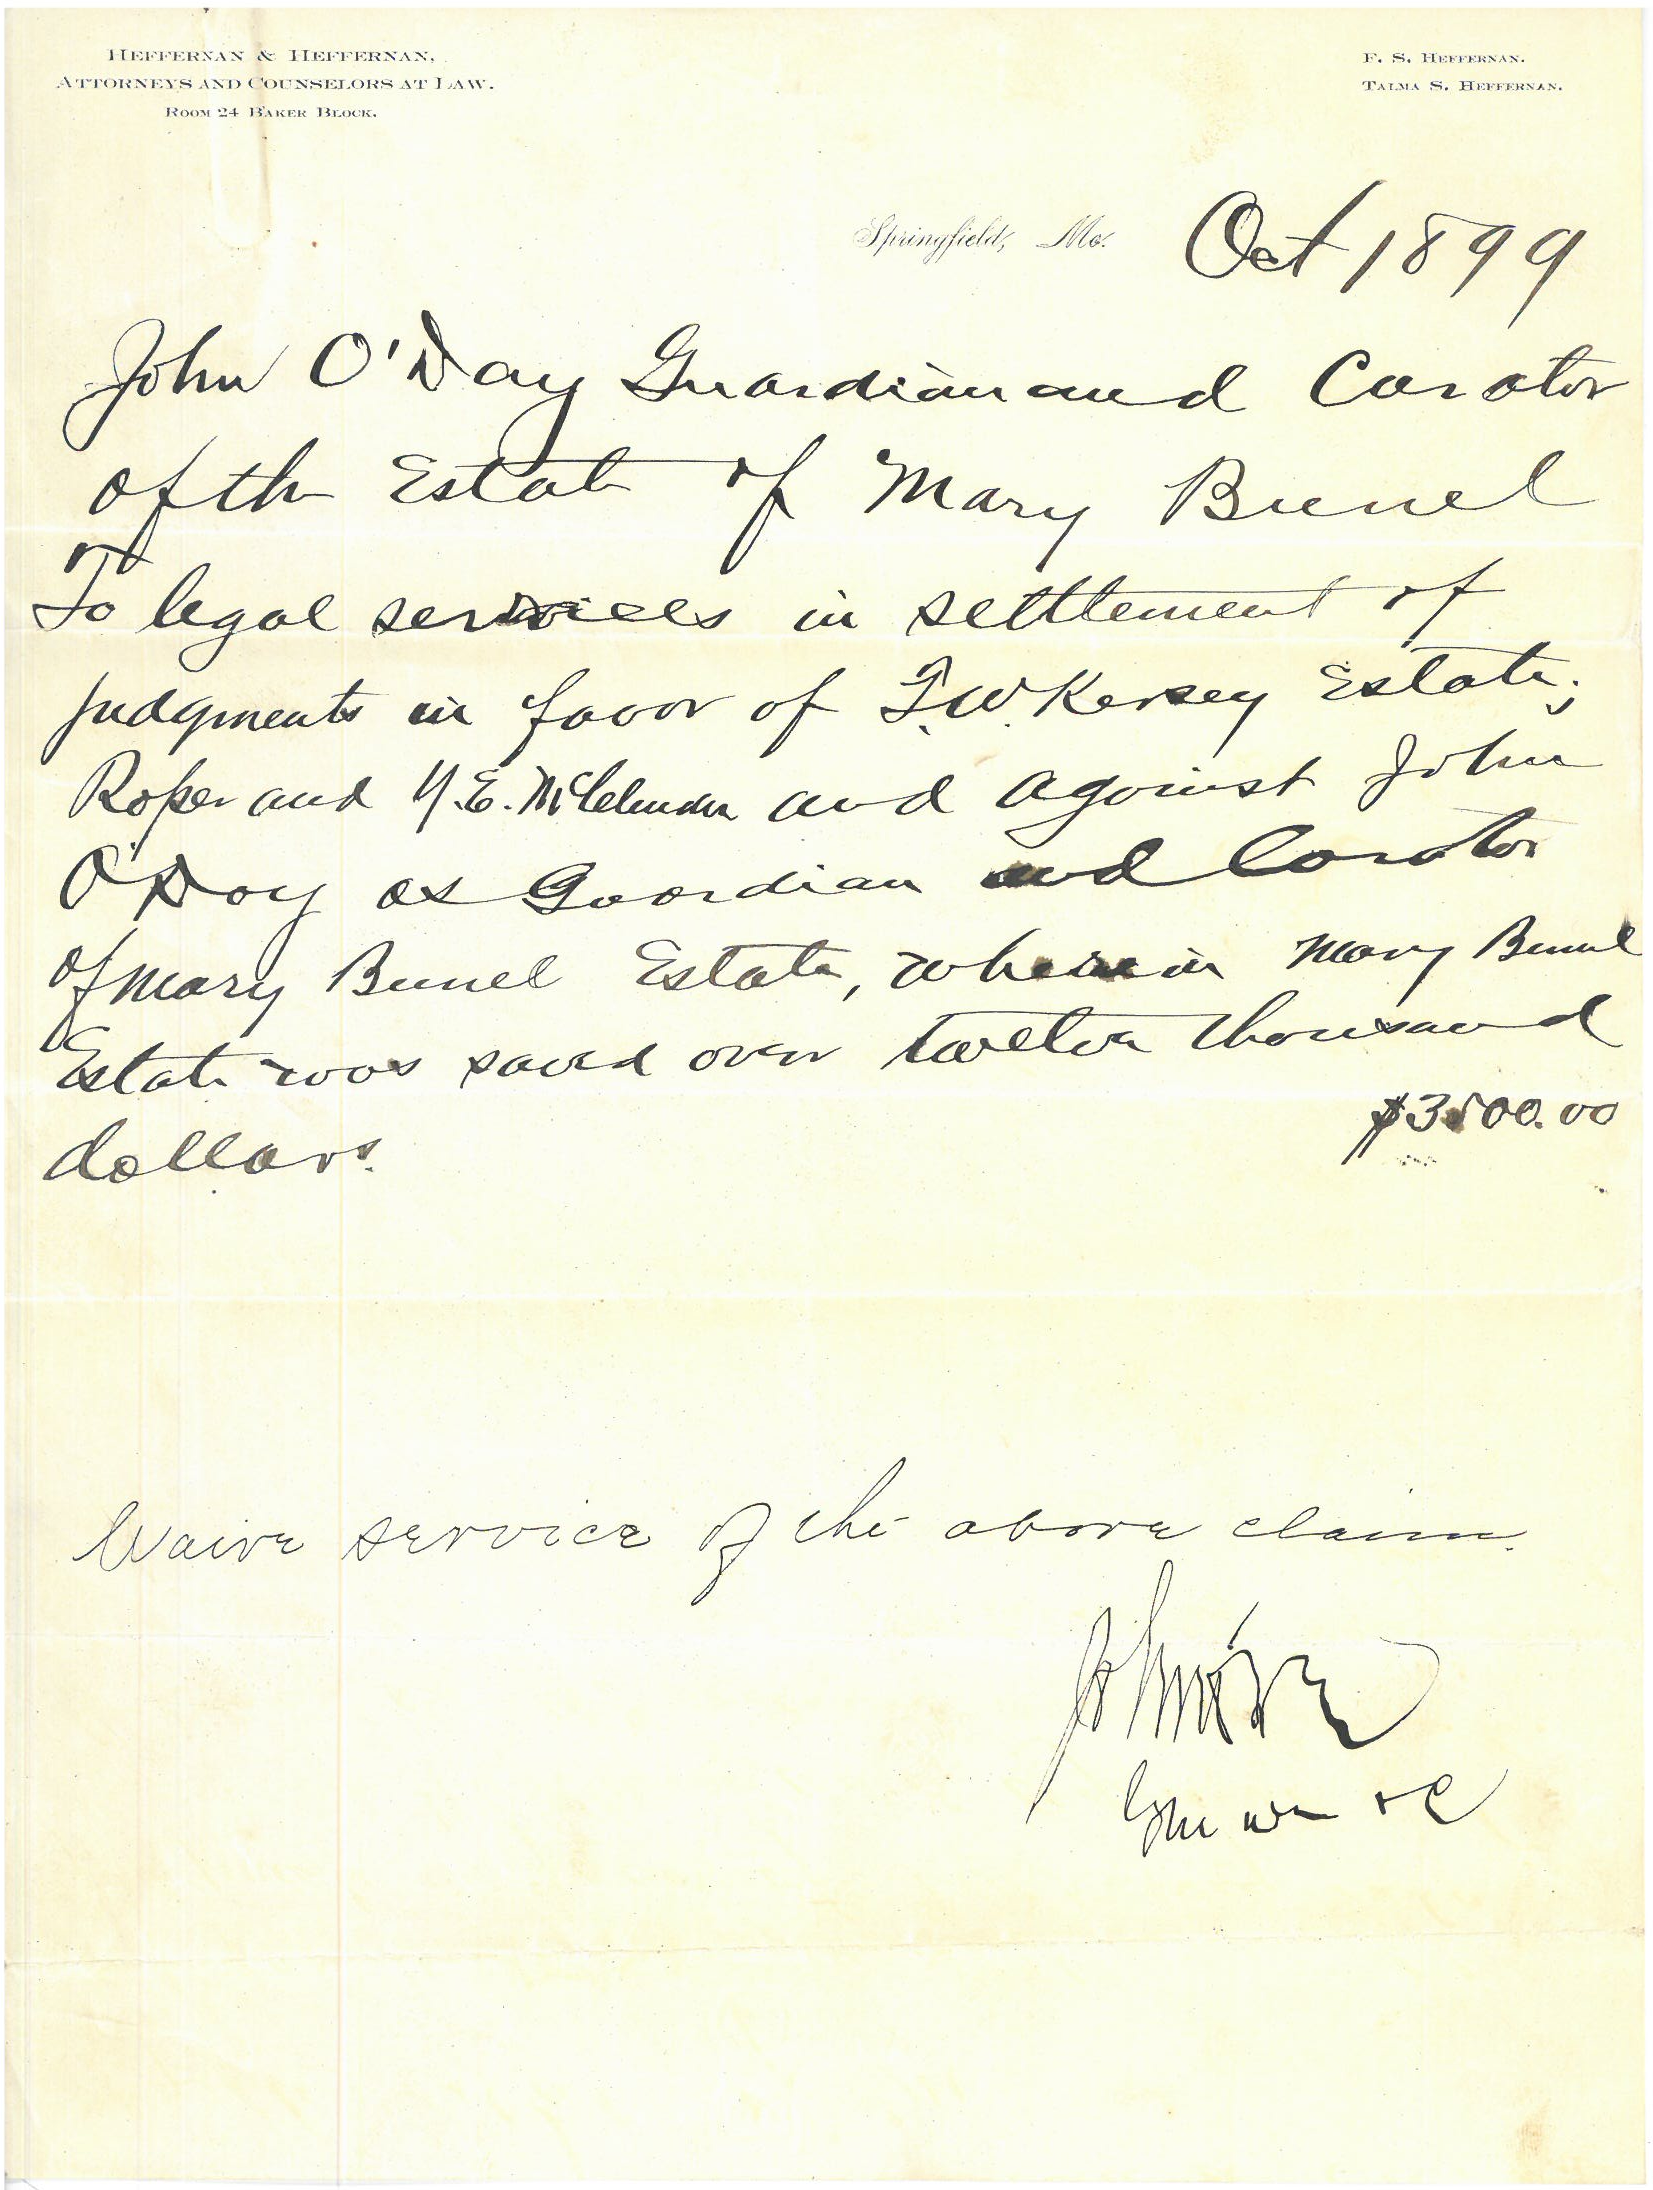 HEFFERNAN & HEFFERNAN,
ATTORNEYS AND COUNSELORS AT LAW.
ROOM 24 BAKER BLOCK.
F. S. HEFFERNAN.
TALMA S. HEFFERNAN.
Springfield, Mo. Oct 1899
John O'Day Guardian and Curator
of the Estate of Mary Bunel
To legal services in settlement of
judgments in favor of T.W. Kersey Estate;
Roper and and against John
O'Day as Guardian and Curator
of Mary Bunel Estate, wherein Mary Bunel
Estate was saved over twelve thousand
dollars. $3500.00
Waive service of the above claim.